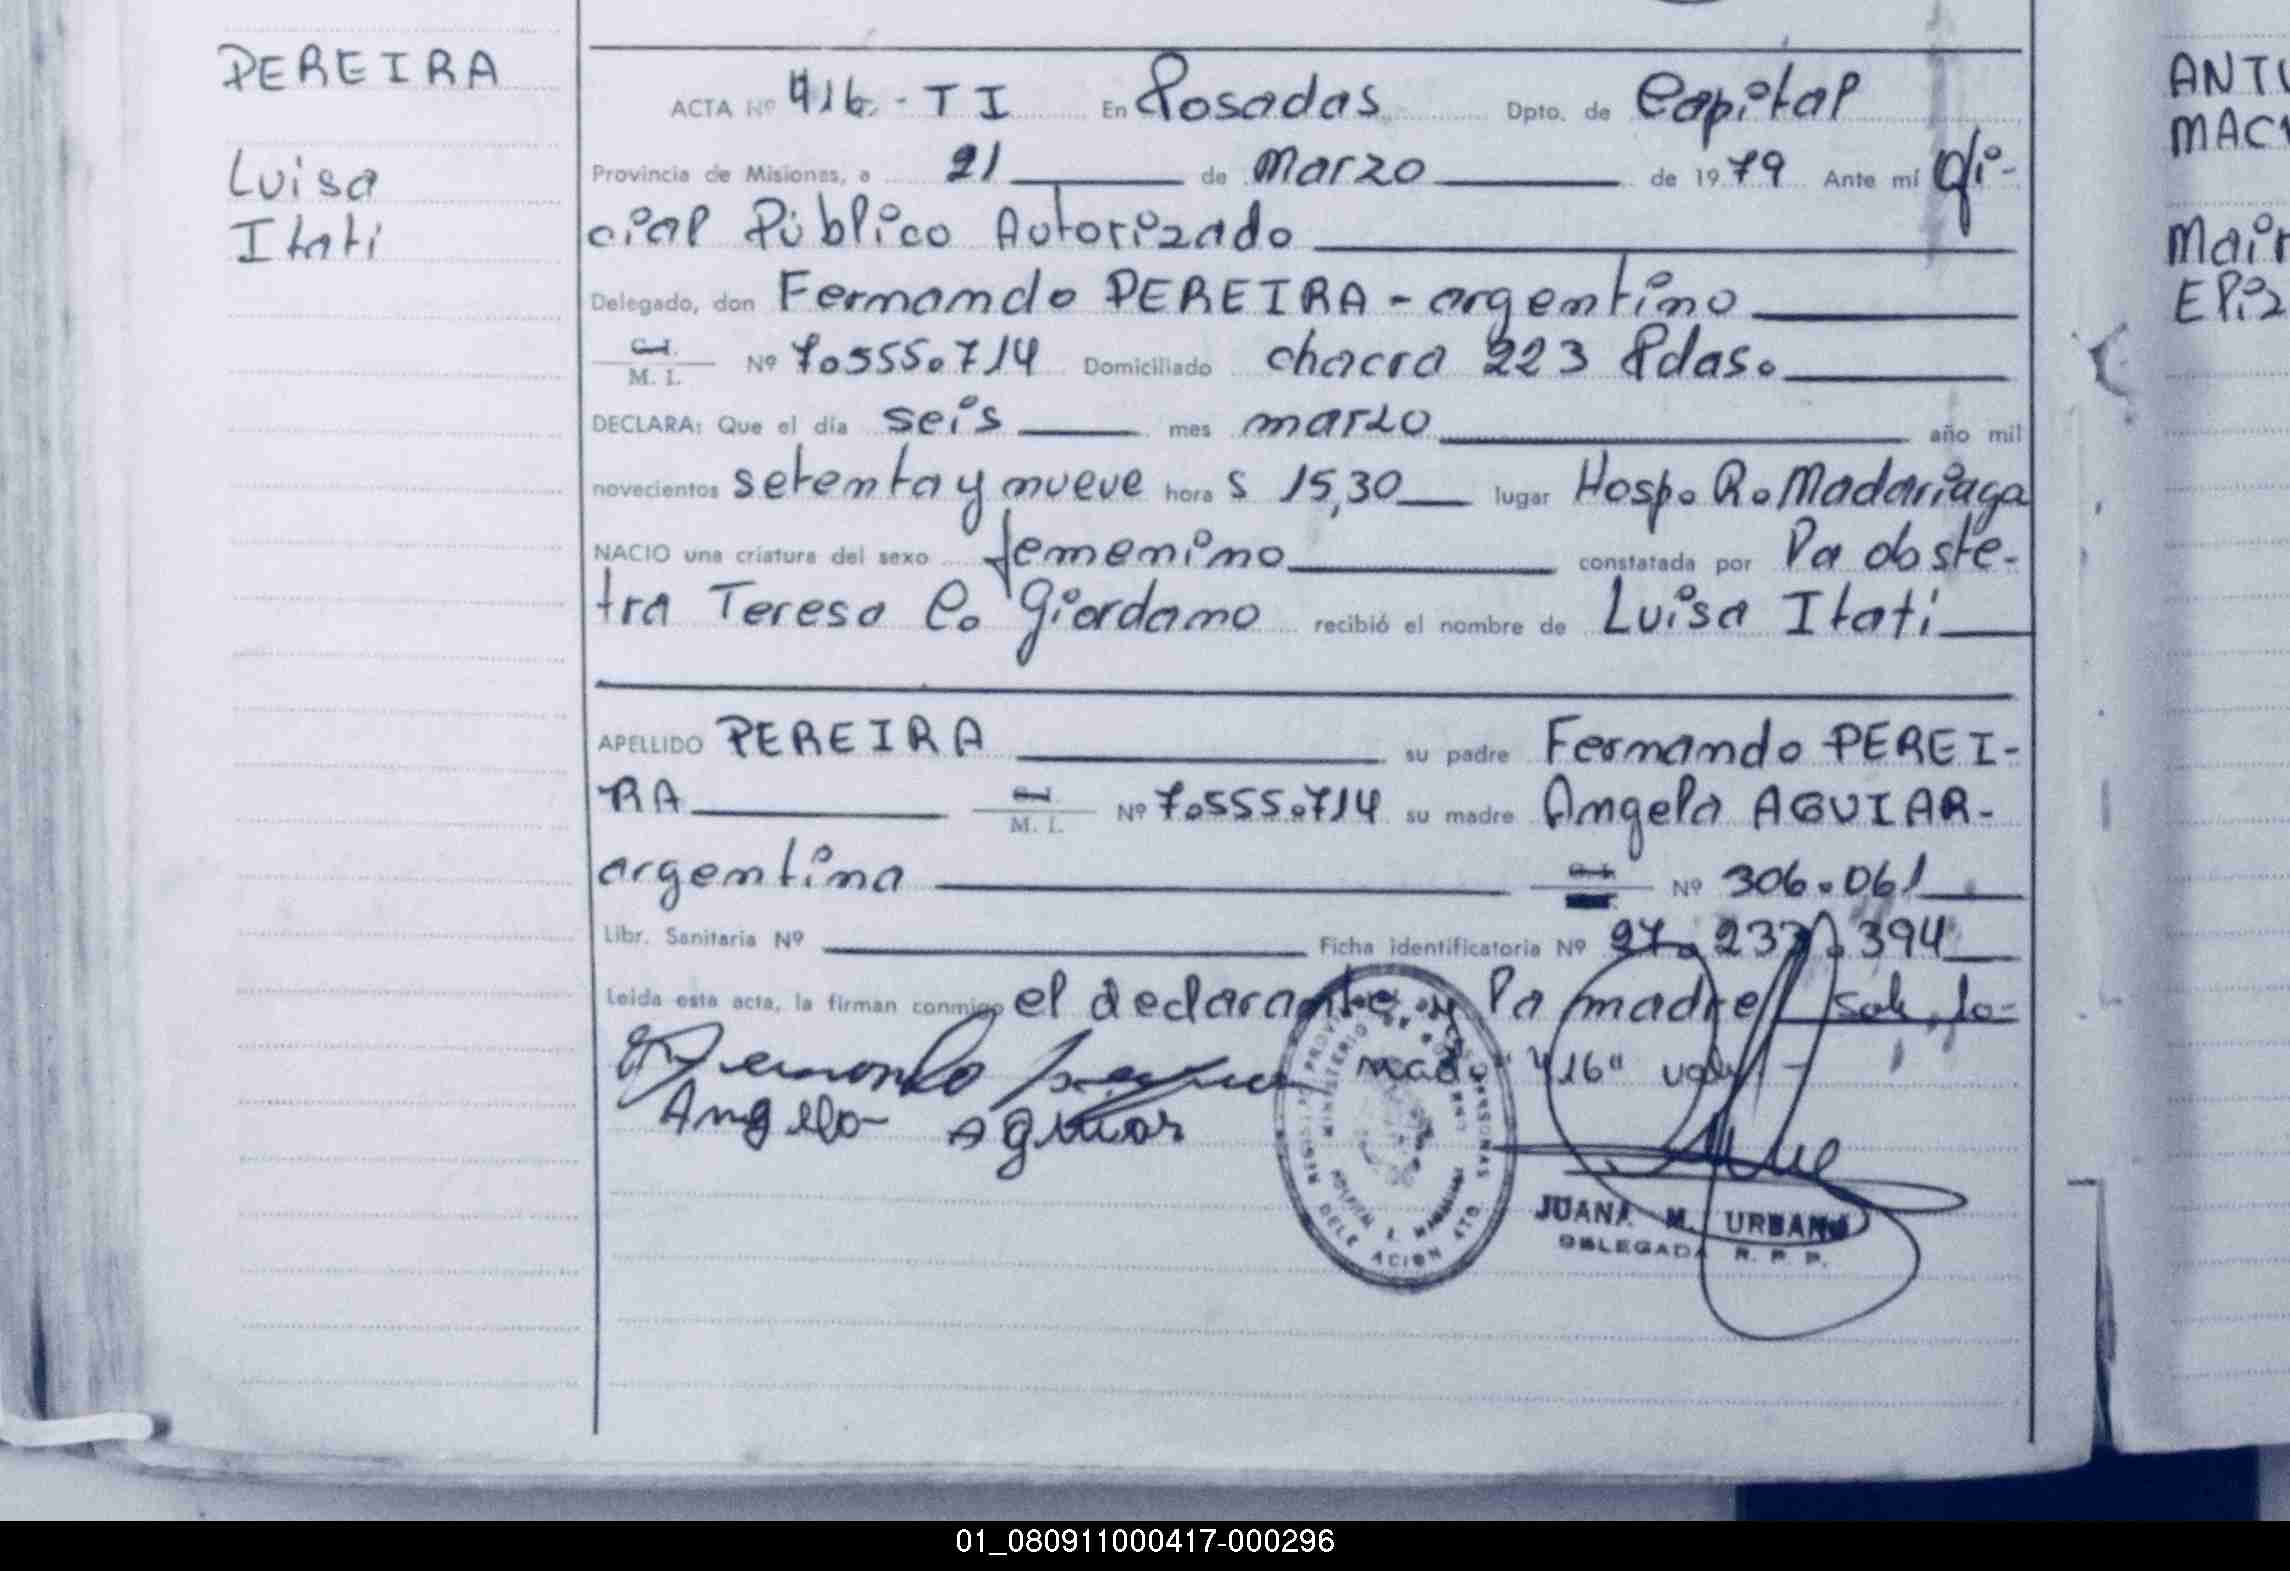 PEREIRA
Luisa
Itati
ACTA Nº 416 - T I En Posadas Dpto. de Capital
Provincia de Misiones, a 21 de Marzo de 1979 Ante mí Ofi-
cial Público Autorizado
Delegado, don Fernando PEREIRA - argentino
C.I.
M. I. Nº 7.555.714 Domiciliado chacra 223 Pdas.
DECLARA: Que el día seis mes marzo año mil
novecientos setenta y nueve hora s 15,30 lugar Hosp. R. Madariaga
NACIO una criatura del sexo femenino constatada por la obste-
tra Teresa C. Giordano recibió el nombre de Luisa Itati
APELLIDO PEREIRA su padre Fernando PEREI-
RA M. I. Nº 7.555.714 su madre Angela AGUIAR -
argentina Nº 306.061
Libr. Sanitaria Nº Ficha identificatoria Nº 27.237.394
Leída esta acta, la firman conmigo el declarante y la madre
Fernando Pereira "416" vale -
Angela Aguiar
REGISTRO PROVINCIAL DE LAS PERSONAS
MINISTERIO DE GOBIERNO
HOSPITAL R. MADARIAGA
DELEGACION 4TO.
JUANA M. URBANO
DELEGADA R. P. P.
ANTU
MACI
EPiz
01_080911000417-000296